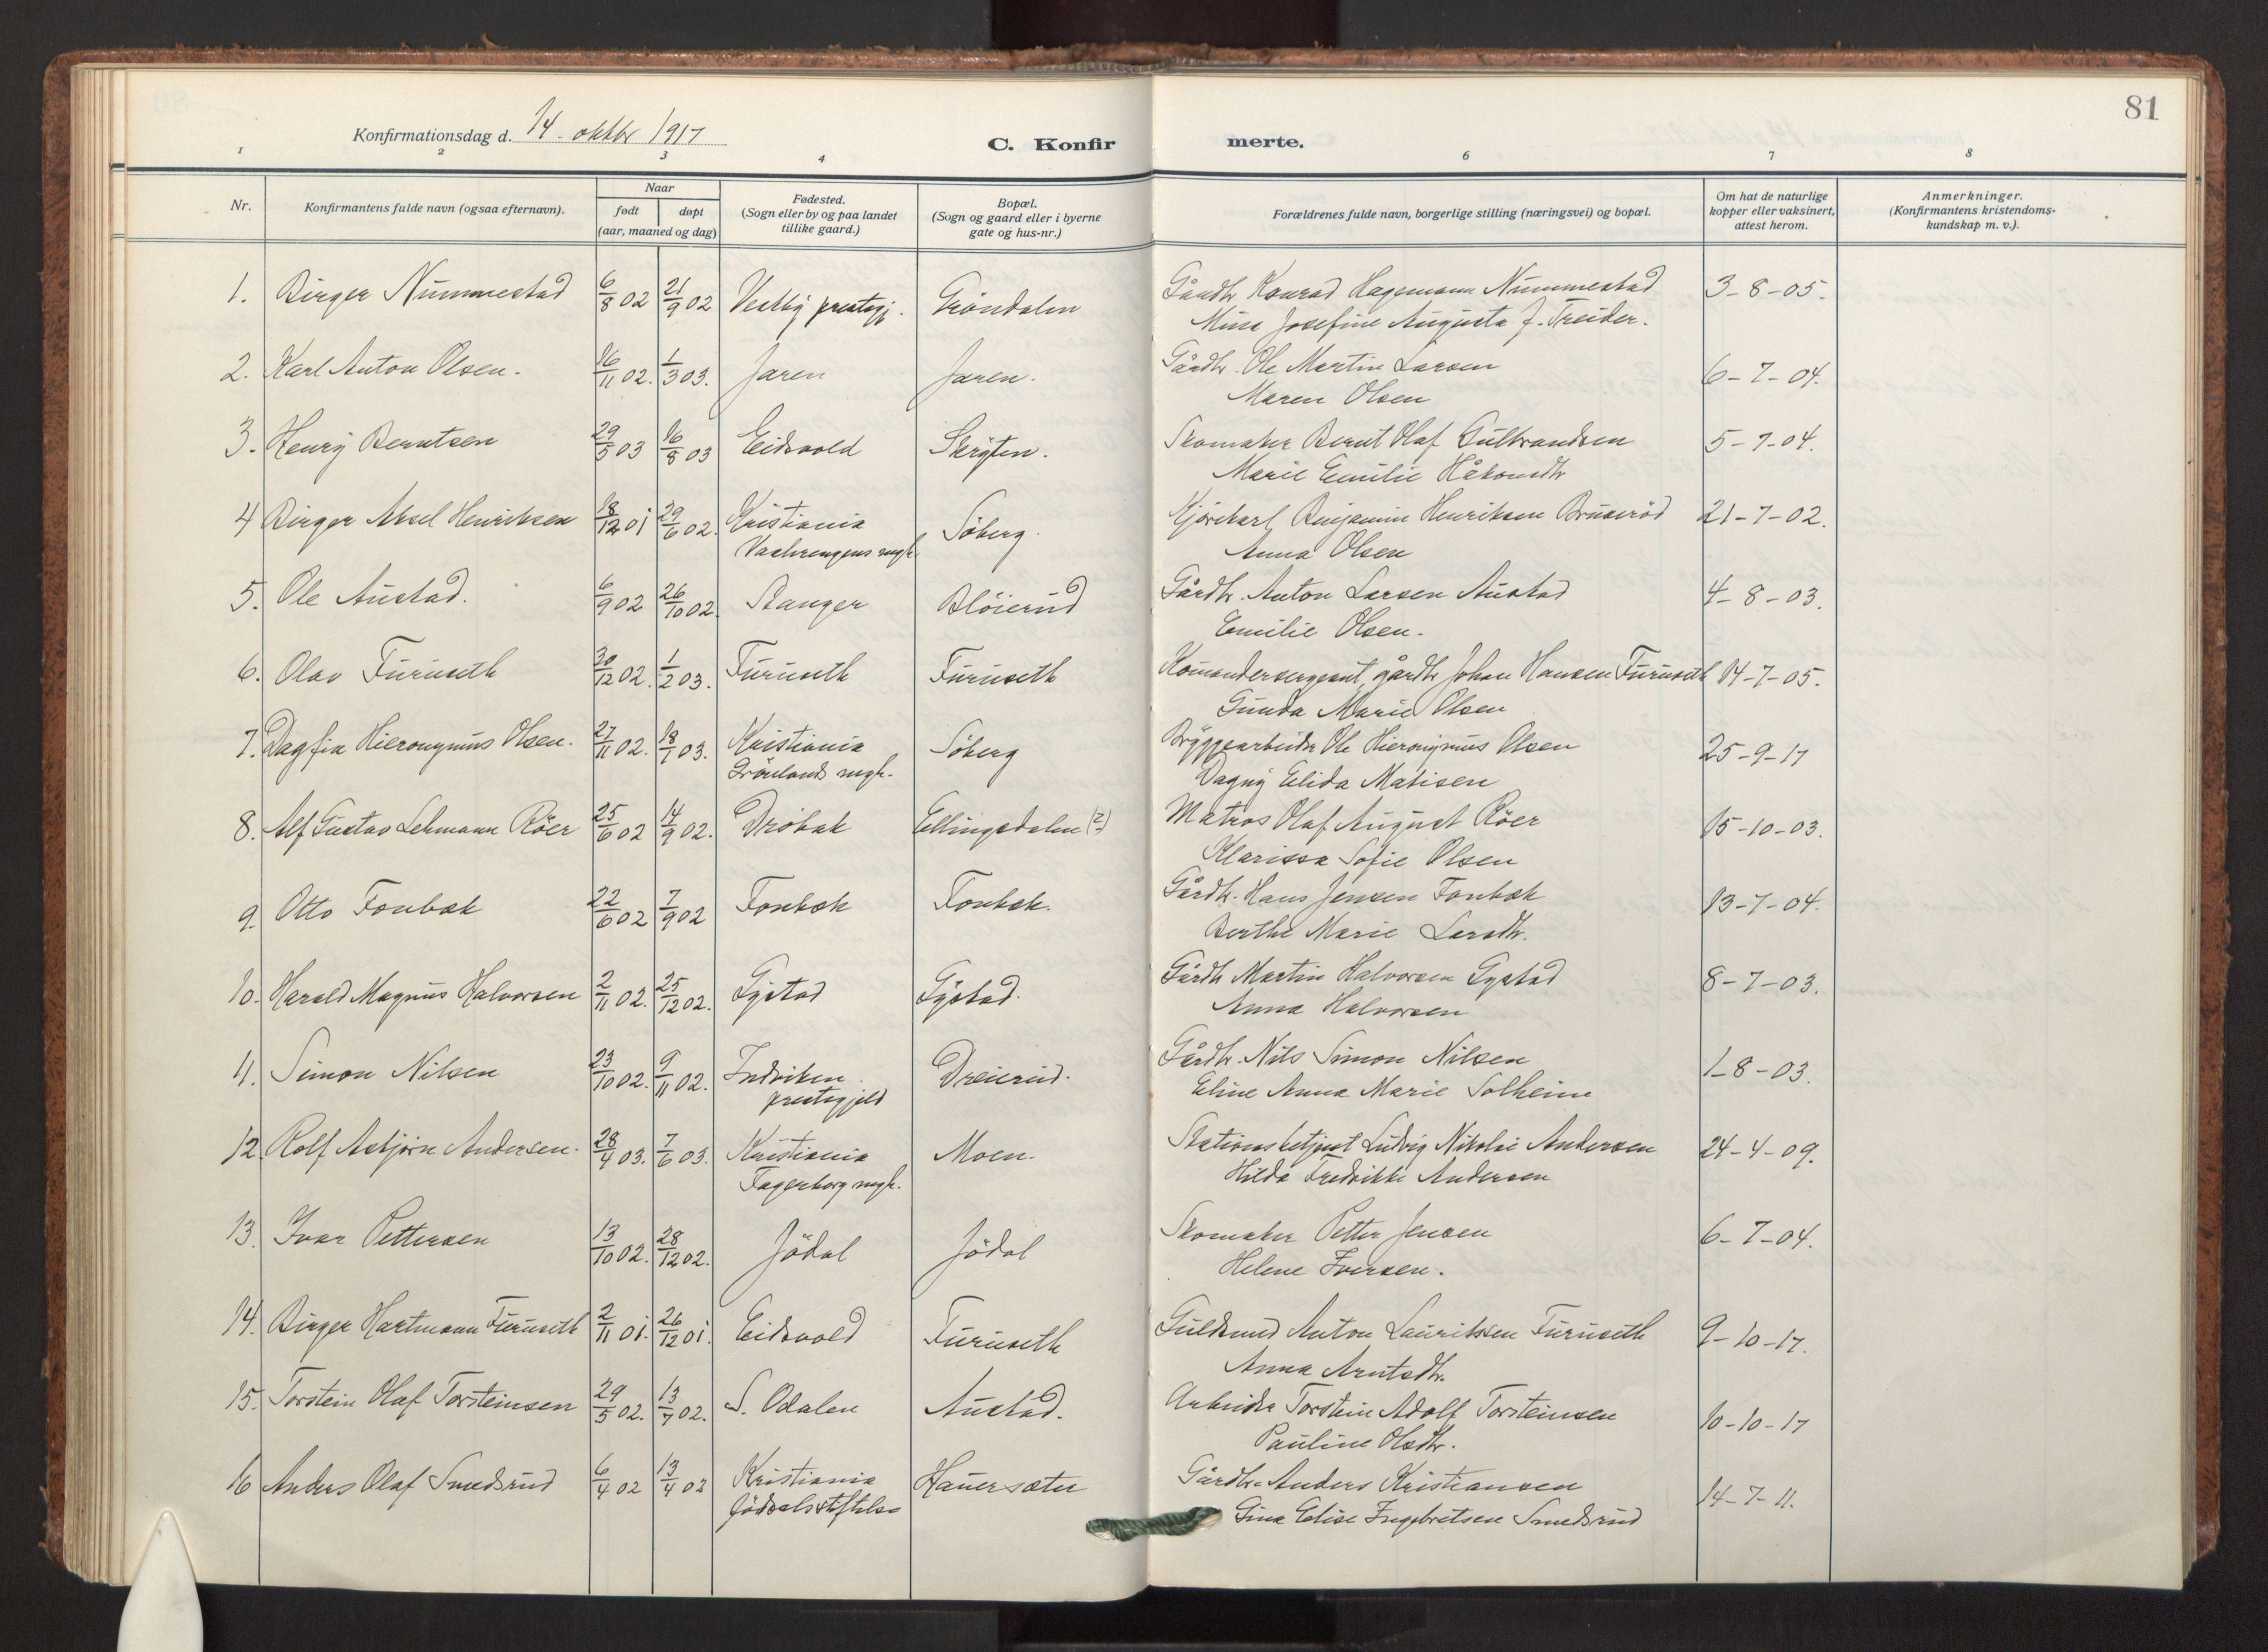 81
Konfirmationsdag d. 14 oktbr 1917
C. Konfirmerte.
1 2 3 4 6 7 8
Nr. Konfirmantens fulde navn (ogsaa efternavn). Naar født døpt (aar, maaned og dag) Fødested. (Sogn eller by og paa landet tillike gaard.) Bopæl. (Sogn og gaard eller i byerne gate og hus-nr.) Forældrenes fulde navn, borgerlige stilling (næringsvei) og bopæl. Om hat de naturlige kopper eller vaksinert, attest herom. Anmerkninger. (Konfirmantens kristendomskundskap m. v.).
1. Birger Nummestad 6/8 02 21/9 02 Vestby prestegj. Gröndalen Gårdbr Konrad Hagemann Nummestad 3-8-05.
Josefine Augusta f. Treider.
2. Karl Anton Olsen. 16/11 02. 1/3 03. Jaren Jaren. Gårdbr. Ole Martin Larsen 6-7-04.
Maren Olsen
3. Henrÿ Berntsen 29/5 03 16/8 03 Eidsvold Skrÿten. Skomaker Bernt Olaf Gulbrandsen 5-7-04.
Marie Emilie Håkonsdtr
4 Birger Aksel Henriksen 18/12 01 29/6 02. Kristiania Söberg. Kjörekarl Benjamin Henriksen Bruseröd 21-7-02.
Vaalerengens mgh. Anna Olsen
5. Ole Austad. 6/9 02 26/10 02. Stanger Blöierud Gårdbr. Anton Larsen Austad 4-8-03.
Emilie Olsen.
6. Olav Furuseth 30/12 02. 1/2 03. Furuseth Furuseth Komandersergeant, gårdbr Johan Hansen Furuseth 14-7-05.
Gunda Marie Olsen
7. Dagfin Hieronymus Olsen. 27/11 02. 18/1 03. Kristiania Söberg Brÿggearbeider Ole Hieronÿmus Olsen 25-9-17
Grönlands mgh. Dagnÿ Elida Matisen
8. Alf Gustav Lehmann Röer 25/6 02 14/9 02. Dröbak Ellingsdalen (?) Matros Olaf August Röer 15-10-03.
Klarissa Sofie Olsen
9. Otto Fonbæk 22/6 02 7/9 02 Fonbæk Fonbæk. Gårdbr. Hans Jensen Fonbæk 13-7-04.
Berthe Marie Larsdtr.
10. Harald Magnus Halvorsen 2/11 02. 25/12 02. Gÿstad Gÿstad. Gårdbr Martin Halvorsen Gystad 8-7-03.
Anna Halvorsen
11. Simon Nilsen 23/10 02. 9/11 02. Indviken Dreierud. Gårdbr. Nils Simon Nilsen 1-8-03.
prestegjeld Eline Anna Marie Solheim
12. Rolf Asbjörn Andersen. 28/4 03. 7/6 03. Kristiania Moen. Stationsbetjent Ludvig Nikolai Andersen 24-4-09.
Fagerborg mgh. Hilda Fredrikke Andersen
13. Ivar Pettersen 13/10 02. 28/12 02. Jödal Jödal Skomaker Petter Jensen 6-7-04.
Helene Iversen.
14. Birger Hartmann Furuseth 2/11 01. 26/12 01. Eidsvold Furuseth Guldsmed Anton Lauritssen Furuseth 9-10-17.
Anna Arntsdtr.
15. Torstein Olaf Torsteinsen 29/5 02. 13/7 02. S. Odalen Austad. Arbeider Torstein Adolf Torsteinsen 10-10-17
Pauline Olsdtr.
16 Anders Olaf Smedsrud 6/4 02 13/4 02 Kristiania Hauersæter Gårdbr. Anders Kristiansen 14-7-11.
födselsstiftelse Gina Elise Ingebretsen Smedsrud